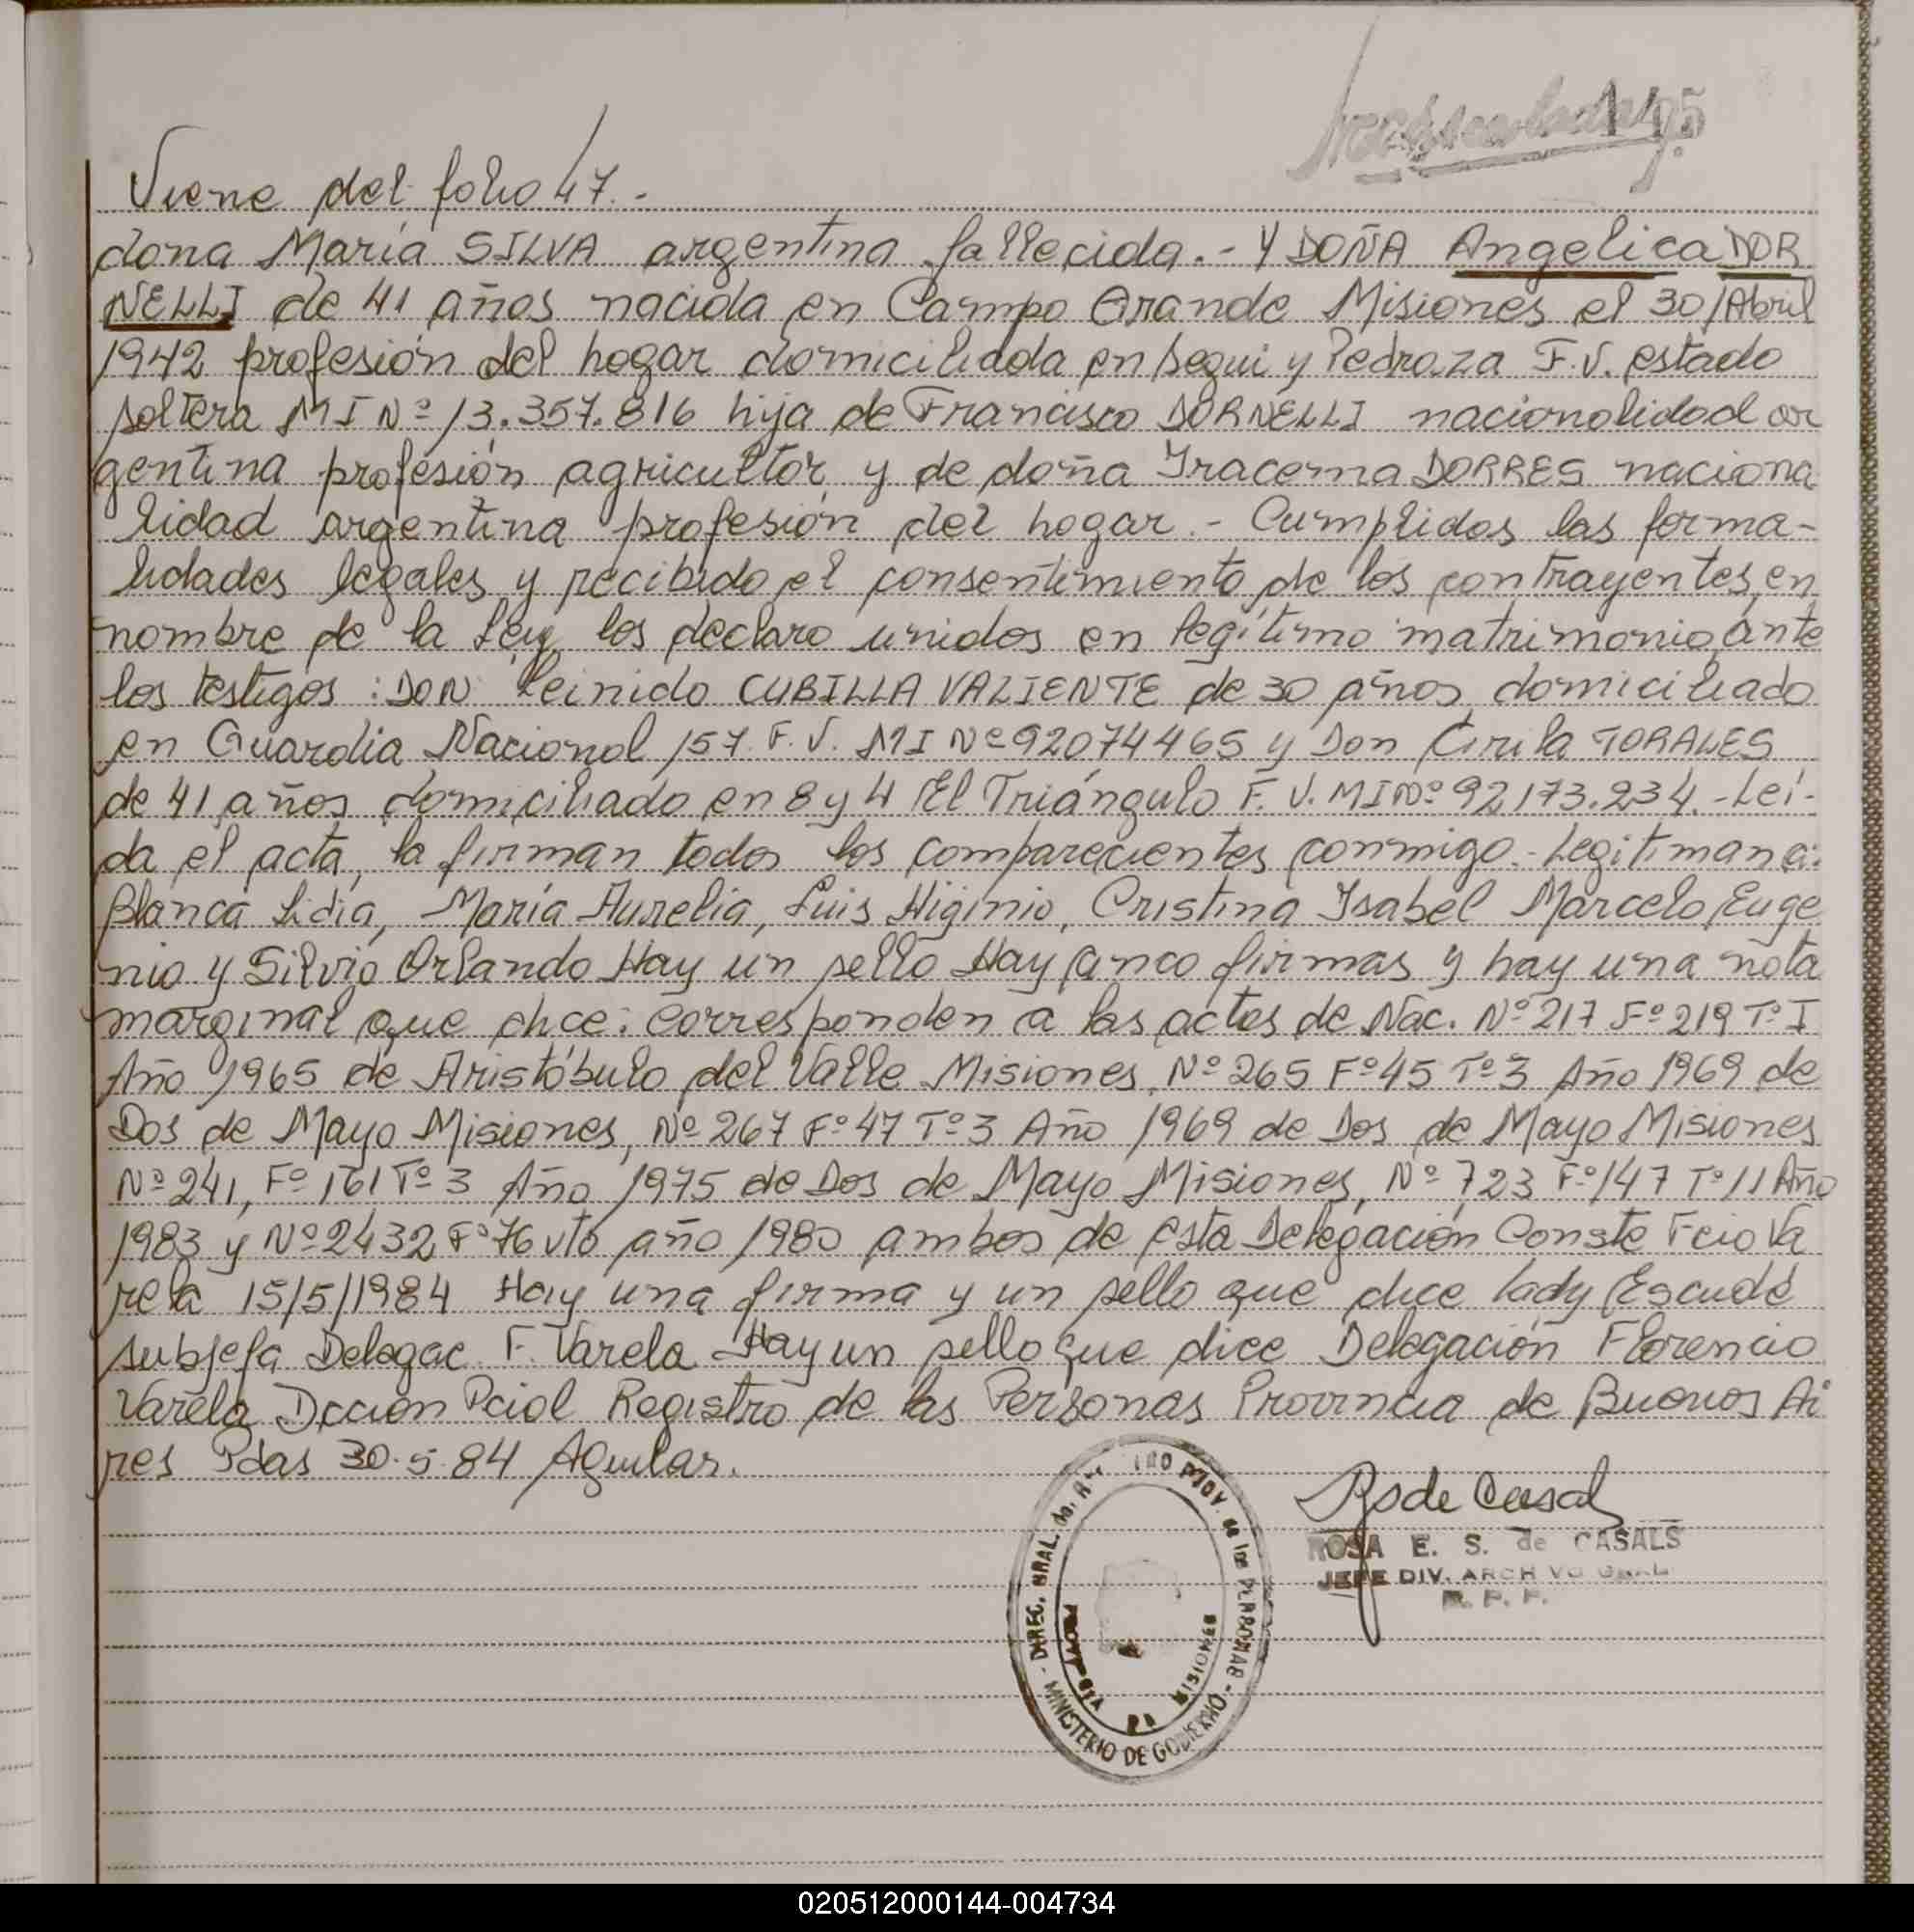 145
Viene del folio 47.-
dona María SILVA argentina fallecida.- Y DOÑA Angelica DOR
NELLI de 41 años nacida en Campo Grande Misiones el 30/Abril
1942 profesión del hogar domiciliada en Segui y Pedraza F.V. estado
soltera MI Nº 13.357.816 hija de Francisco DORNELLI nacionalidad ar
gentina profesión agricultor y de doña Iracema DORRES naciona
lidad argentina profesión del hogar.- Cumplidas las forma-
lidades legales y recibido el consentimiento de los contrayentes, en
nombre de la Ley los declaro unidos en legítimo matrimonio, ante
los testigos: DON Leinido CUBILLA VALIENTE de 30 años domiciliado
en Guardia Nacional 157 F.V. MI Nº 92074465 y Don Cirila TORALES
de 41 años domiciliado en 8 y 4 El Triángulo F.V. MI Nº 92173.234.- Leí-
da el acta, la firman todos los comparecientes conmigo.- Legitiman a:
Blanca Lidia, María Aurelia, Luis Higinio, Cristina Isabel Marcelo Euge
nio y Silvio Orlando Hay un sello Hay cinco firmas y hay una nota
marginal que dice: corresponden a las actas de Nac. Nº 217 Fº 219 Tº I
Año 1965 de Aristóbulo del Valle Misiones, Nº 265 Fº 45 Tº 3 Año 1969 de
Dos de Mayo Misiones, Nº 267 Fº 47 Tº 3 Año 1969 de Dos de Mayo Misiones
Nº 241, Fº 161 Tº 3 Año 1975 de Dos de Mayo Misiones, Nº 723 Fº 147 Tº 11 Año
1983 y Nº 2432 Fº 76 vto año 1980 ambos de esta Delegación Conste Fcio Va
rela 15/5/1984 Hay una firma y un sello que dice Lady Escudé
subjefa Delegac F. Varela Hay un sello que dice Delegación Florencio
Varela Dcción Pcial Registro de las Personas Provincia de Buenos Ai
res Pdas 30.5.84 Aguilar.
Rs de Casal
ROSA E. S. de CASALS
JEFE DIV. ARCHIVO GRAL
R. P. P.
DIREC. GRAL. PROV. de las PERSONAS - MINISTERIO DE GOBIERNO -
MISIONES
020512000144-004734